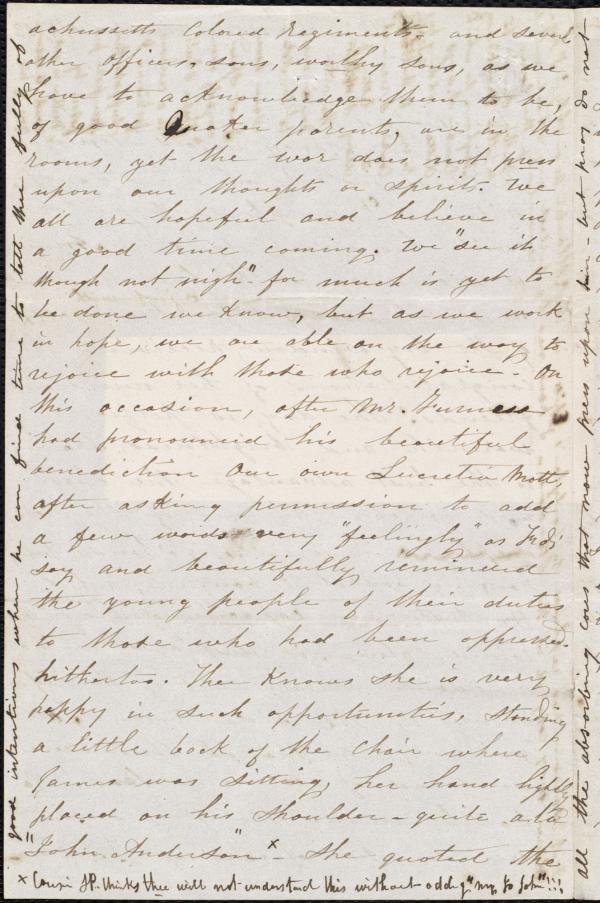 achussetts Colored Regiments - and several
other officers, sons, worthy sons, as we
have to acknowledge them to be,
of good Quaker parents, are in the
rooms, yet the war does not press
upon our thoughts or spirit. We
all are hopeful and believe in
a good time coming. We "see it
though not nigh" - for much is yet to
be done we know, but as we work
in hope, we are able on the way to
rejoice with those who rejoice - On
this occasion, after Mr. Furness
had pronounced his beautiful
benediction Our own Lucretia Mott,
after asking permission to add
a few words very "feelingly" as Frds
say and beautifully reminded
the young people of their duties
to those who had been oppressed
hithertoo. Thee knows she is very
happy in such opportunities. Standing
a little back of the chair where
James was sitting, her hand lightly
placed on his shoulder - quite a la
"John Anderson" x - She quoted the
x Cousin JP. thinks thee will not understand this without addg "my Jo John"!!!
good intentions when he can find time to tell thee fully of
all the absorbing cares that now press upon him - but pray do not